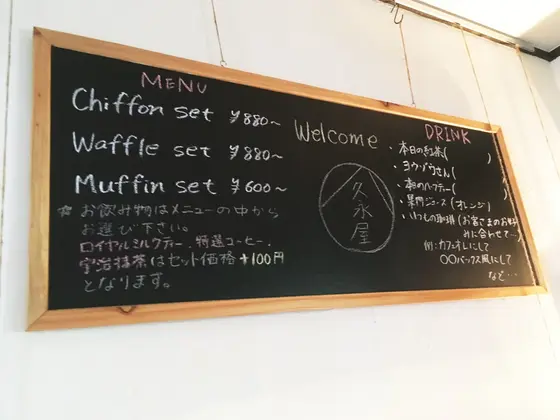 MENU
Chiffon set ¥880〜
Waffle set ¥880〜
Muffin set ¥600〜
☆お飲み物はメニューの中から
お選び下さい。
ロイヤルミルクティー、特選コーヒー、
宇治抹茶はセット価格+100円
となります。
Welcome
久永屋
DRINK
・本日の紅茶( )
・ヨウ・ゾウさん
・本日のハーブティー(
・果門ジュース(オレンジ)
・いつもの珈琲(お客さまのお好
みに合わせて…)
例:カフェオレにして
〇〇バックス風にして
など…